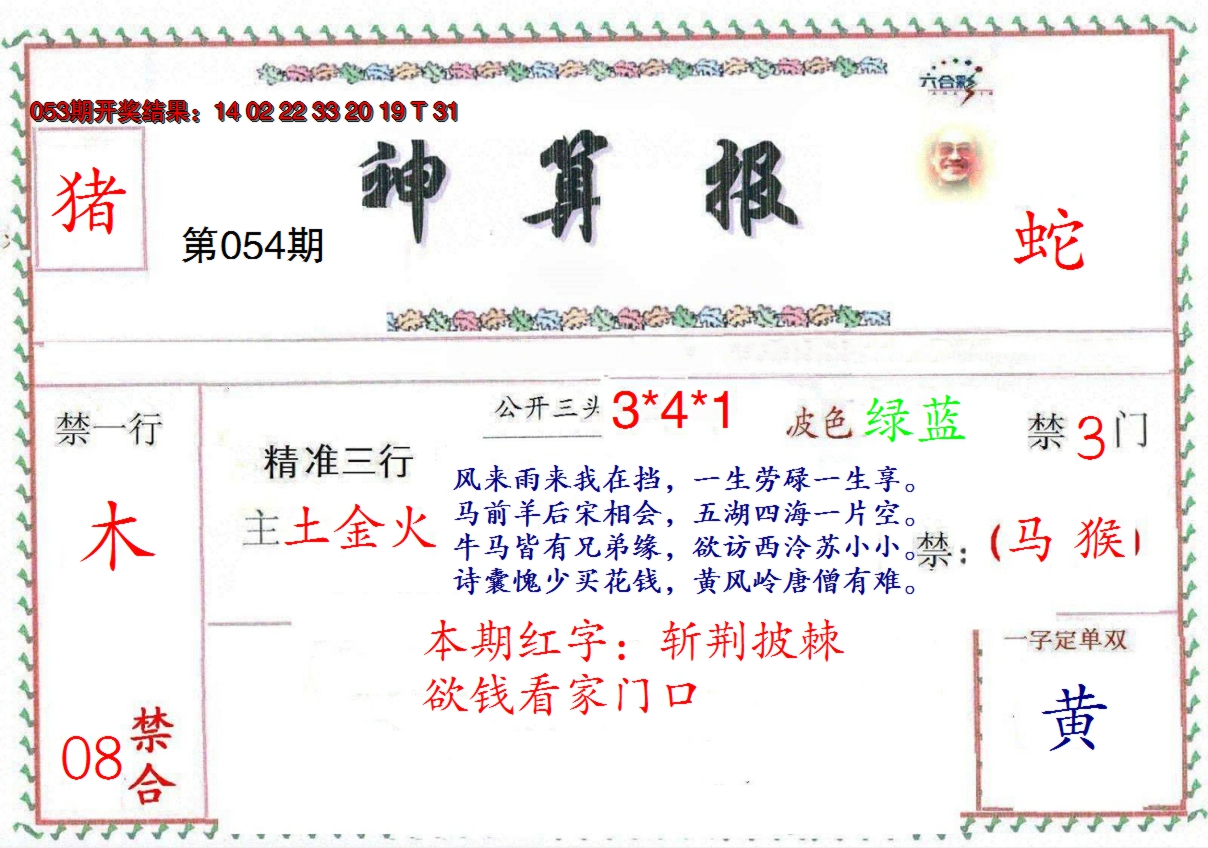 六合彩
053期开奖结果：14 02 22 33 20 19 T 31
神算报
猪
第054期
蛇
禁一行
木
08
禁合
公开三头
3*4*1
波色 绿蓝
禁3门
精准三行
主土金火
风来雨来我在挡，一生劳碌一生享。
马前羊后宋相会，五湖四海一片空。
牛马皆有兄弟缘，欲访西泠苏小小。
诗囊愧少买花钱，黄风岭唐僧有难。
禁：（马 猴）
本期红字：斩荆披棘
欲钱看家门口
一字定单双
黄